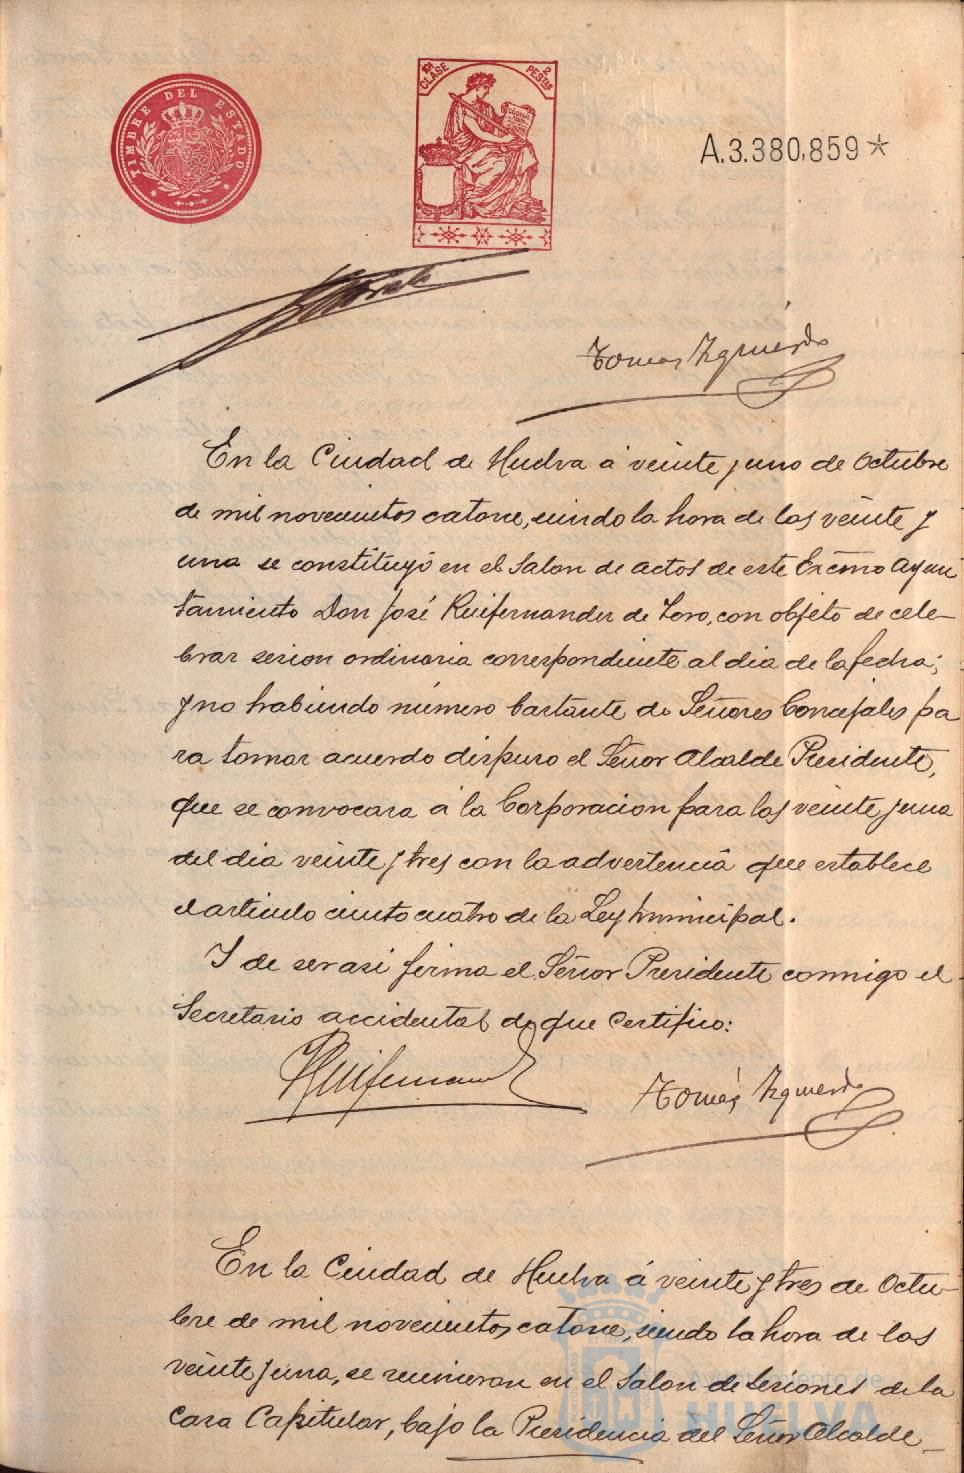 TIMBRE DEL ESTADO
10ª CLASE 2 PESTAS
A.3.380,859*
Tomás Izquierdo
En la Ciudad de Huelva á veinte y uno de Octubre
de mil novecientos catorce, siendo la hora de las veinte y
una se constituyó en el Salon de actos de este Excmo Ayun
tamiento Don José Ruifernandez de Toro, con objeto de cele-
brar sesion ordinaria correspondiente al dia de la fecha;
y no habiendo número bastante de Señores Concejales pa
ra tomar acuerdo dispuso el Señor Alcalde Presidente,
que se convocara á la Corporacion para las veinte y una
del dia veinte y tres con la advertencia que establece
el articulo ciento cuatro de la Ley Municipal.
Y de ser asi firma el Señor Presidente conmigo el
Secretario accidental de que Certifico:
Ruifernandez
Tomás Izquierdo
En la Ciudad de Huelva á veinte y tres de Octu-
bre de mil novecientos catorce, siendo la hora de las
veinte y una, se reunieron en el Salon de Sesiones de la
Casa Capitular, bajo la Presidencia del Señor Alcalde
Ayuntamiento de
HUELVA